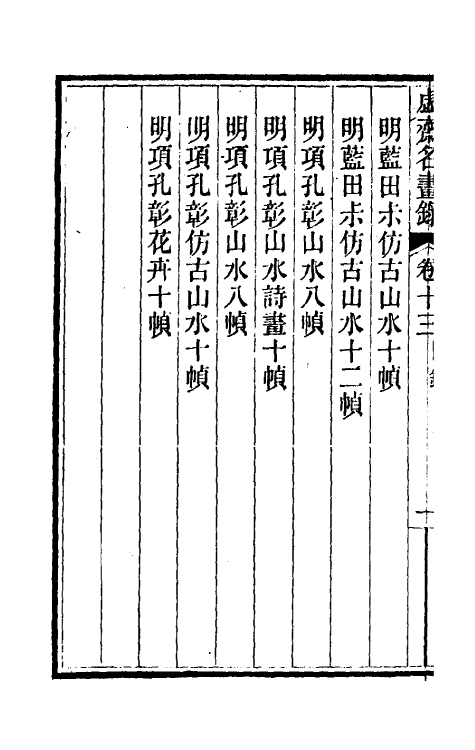 虛齋名畫錄 卷十三 目錄 一
明藍田尗仿古山水十幀
明藍田尗仿古山水十二幀
明項孔彰山水八幀
明項孔彰山水詩畫十幀
明項孔彰山水八幀
明項孔彰仿古山水十幀
明項孔彰花卉十幀